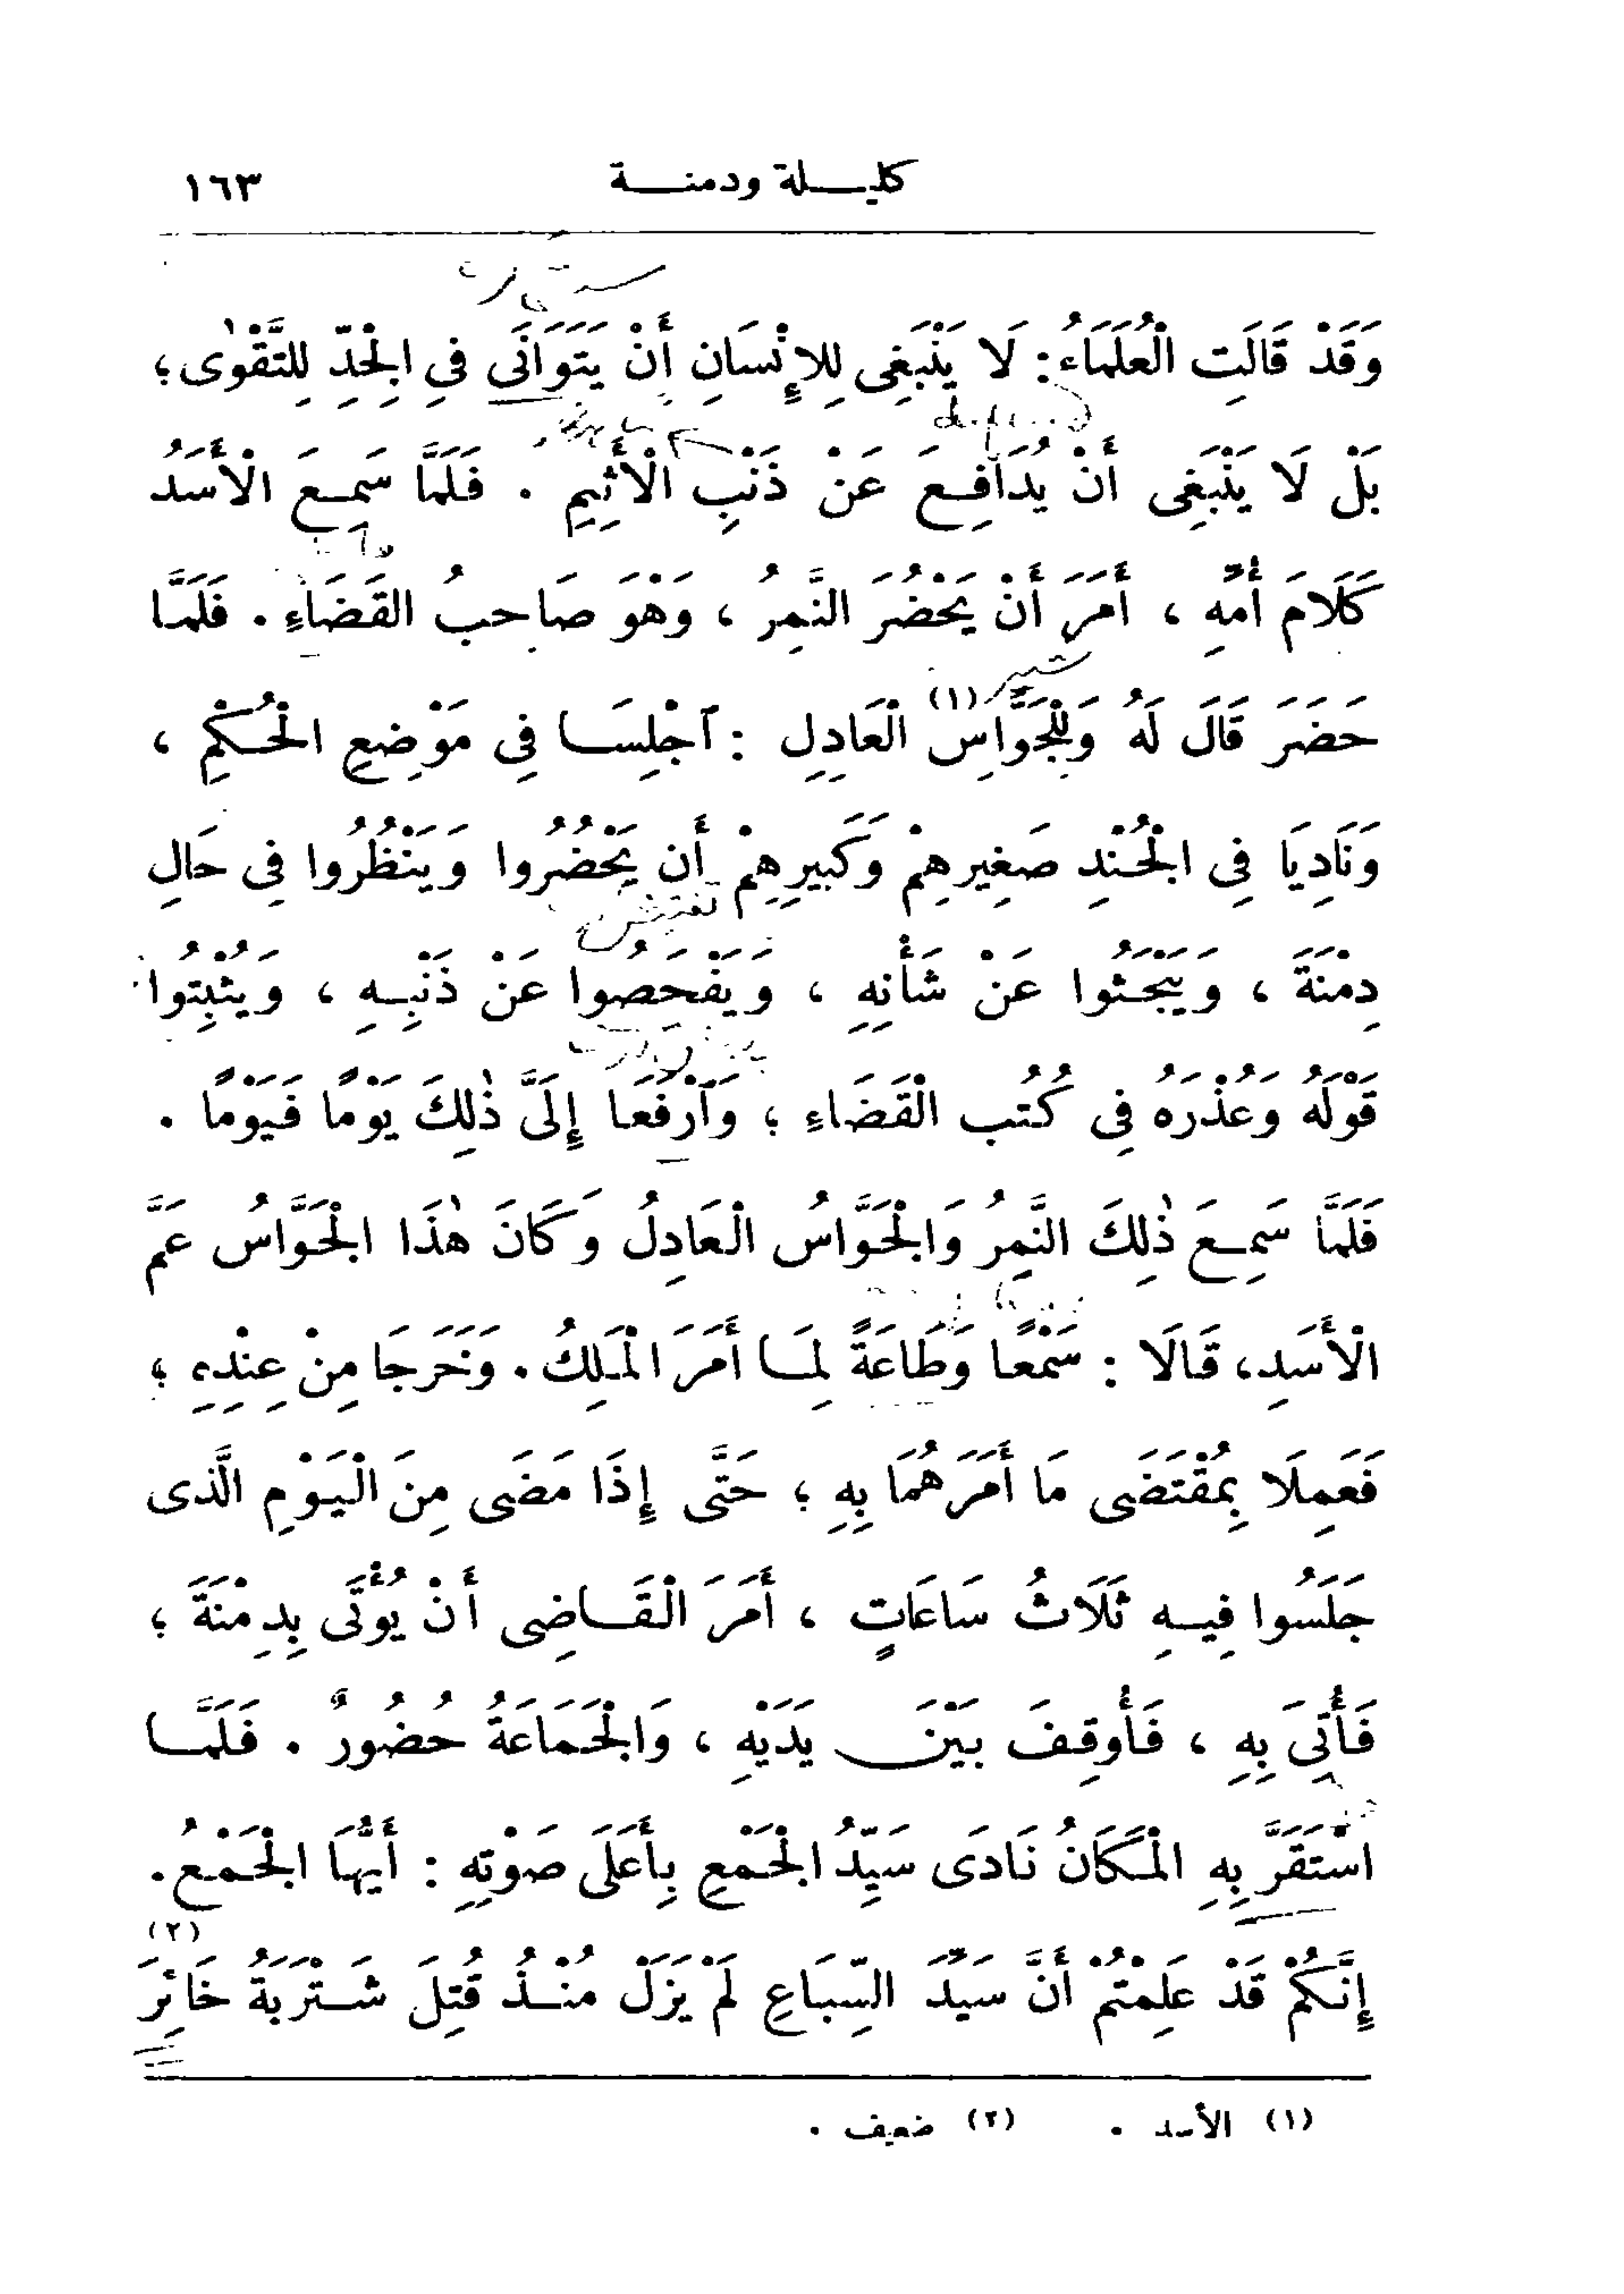 كليلة ودمنة ١٦٣
وَقَدْ قَالَتِ الْعُلَمَاءُ: لَا يَنْبَغِى لِلْإِنْسَانِ أَنْ يَتَوَانَى فِى الْجِدِّ لِلتَّقْوٰى؛
بَلْ لَا يَنْبَغِى أَنْ يُدَافِعَ عَنْ ذَنْبِ الْأَثِيمِ . فَلَمَّا سَمِعَ الْأَسَدُ
كَلَامَ أُمِّهِ ، أَمَرَ أَنْ يَحْضُرَ النَّمِرُ ، وَهْوَ صَاحِبُ القَضَاءِ . فَلَمَّا
حَضَرَ قَالَ لَهُ وَلِلْجَوَّاسِ (١) الْعَادِلِ : ٱجْلِسَا فِى مَوْضِعِ الْحُكْمِ ،
وَنَادِيَا فِى الْجُنْدِ صَغِيرِهِمْ وَكَبِيرِهِمْ أَن يَحْضُرُوا وَيَنْظُرُوا فِى حَالِ
دِمْنَةَ ، وَيَبْحَثُوا عَنْ شَأْنِهِ ، وَيَفْحَصُوا عَنْ ذَنْبِهِ ، وَيُثْبِتُوا
قَوْلَهُ وَعُذْرَهُ فِى كُتُبِ الْقَضَاءِ ؛ وَٱرْفَعَا إِلَىَّ ذٰلِكَ يَوْمًا فَيَوْمًا .
فَلَمَّا سَمِعَ ذٰلِكَ النَّمِرُ وَالْجَوَّاسُ الْعَادِلُ وَكَانَ هٰذَا الْجَوَّاسُ عَمَّ
الْأَسَدِ، قَالَا : سَمْعًا وَطَاعَةً لِمَا أَمَرَ الْمَلِكُ . وَخَرَجَا مِنْ عِنْدِهِ ؛
فَعَمِلَا بِمُقْتَضَى مَا أَمَرَهُمَا بِهِ ؛ حَتَّى إِذَا مَضَى مِنَ الْيَوْمِ الَّذى
جَلَسُوا فِيهِ ثَلَاثُ سَاعَاتٍ ، أَمَرَ الْقَاضِى أَنْ يُؤْتَى بِدِمْنَةَ ؛
فَأُتِىَ بِهِ ، فَأُوقِفَ بَيْنَ يَدَيْهِ ، وَالْجَمَاعَةُ حُضُورٌ . فَلَمَّا
اسْتَقَرَّ بِهِ الْمَكَانُ نَادَى سَيِّدُ الْجَمْعِ بِأَعْلَى صَوْتِهِ : أَيُّهَا الْجَمْعُ.
إِنَّكُمْ قَدْ عَلِمْتُمْ أَنَّ سَيِّدَ السِّبَاعِ لَمْ يَزَلْ مُنْذُ قُتِلَ شَتْرَبَةُ خَائِرَ (٢)
(١) الأسد . (٢) ضعيف .